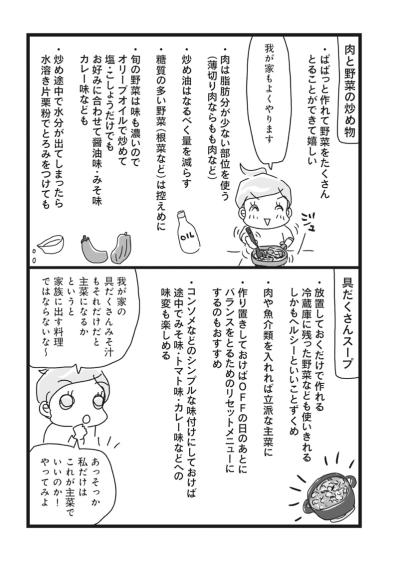 肉と野菜の炒め物
・ぱぱっと作れて野菜をたくさん
とることができて嬉しい
我が家もよくやります
・肉は脂肪分が少ない部位を使う
(薄切り肉ならもも肉など)
・炒め油はなるべく量を減らす
・糖質の多い野菜(根菜など)は控えめに
・旬の野菜は味も濃いので
オリーブオイルで炒めて
塩・こしょうだけでも
お好みに合わせて醤油味・みそ味
カレー味なども
・炒め途中で水分が出てしまったら
水溶き片栗粉でとろみをつけても
OIL
具だくさんスープ
・放置しておくだけで作れる
冷蔵庫に残った野菜なども使いきれる
しかもヘルシーといいことずくめ
・肉や魚介類を入れれば立派な主菜に
・作り置きしておけばOFFの日のあとに
バランスをとるためのリセットメニューに
するのもおすすめ
・コンソメなどのシンプルな味付けにしておけば
途中でみそ味・トマト味・カレー味などへの
味変も楽しめる
我が家の
具だくさんみそ汁
もそれだけだと
主菜になるか
というと
家族に出す料理
ではならないな〜
あっそっか
私だけは
これが主菜で
いいのか!
やってみよ